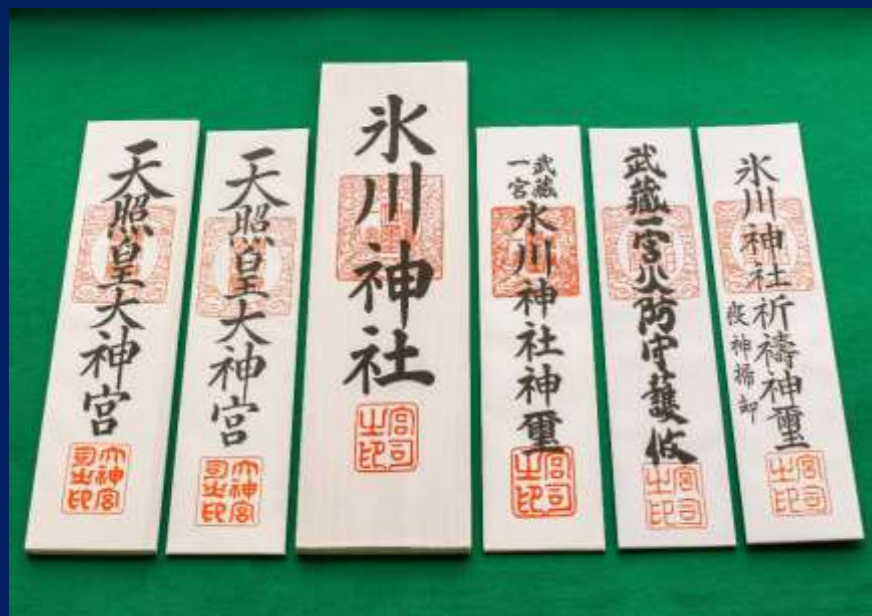 天照皇大神宮
大神宮司之印
天照皇大神宮
大神宮司之印
氷川神社
宮司之印
武蔵一宮
氷川神社神璽
宮司之印
武蔵一宮火防守護攸
宮司之印
氷川神社祈禱神璽
疫神掃却
宮司之印